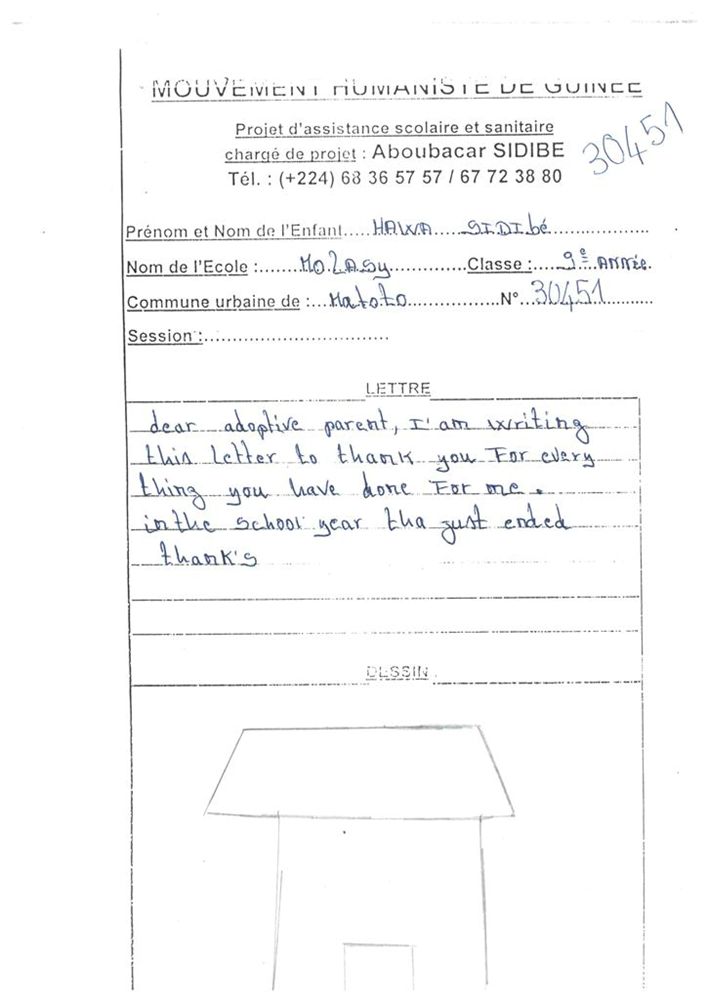 MOUVEMENT HUMANISTE DE GUINEE
Projet d'assistance scolaire et sanitaire
chargé de projet : Aboubacar SIDIBE
30451
Tél. : (+224) 68 36 57 57 / 67 72 38 80
Prénom et Nom de l'Enfant.....HAWA.....SIDIbé..................
Nom de l'Ecole :.......MOLASy..............Classe :.....9e ANNée.
Commune urbaine de :...Matoto.................N°...30451..........
Session :.................................
LETTRE
dear adoptive parent, I'am writing
this Letter to thank you For every
thing you have done For me.
in the school year tha just ended
thank's
DESSIN